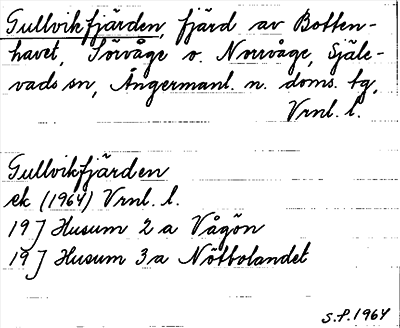 Gullvikfjärden, fjärd av Botten-
havet, Sörvåge o. Norrvåge, Själe-
vads sn, Ångermanl. n. doms. tg,
Vrnl. l.
Gullvikfjärden
ek (1964) Vrnl. l.
19J Husum 2a Vågön
19J Husum 3a Nötbolandet
S.P. 1964